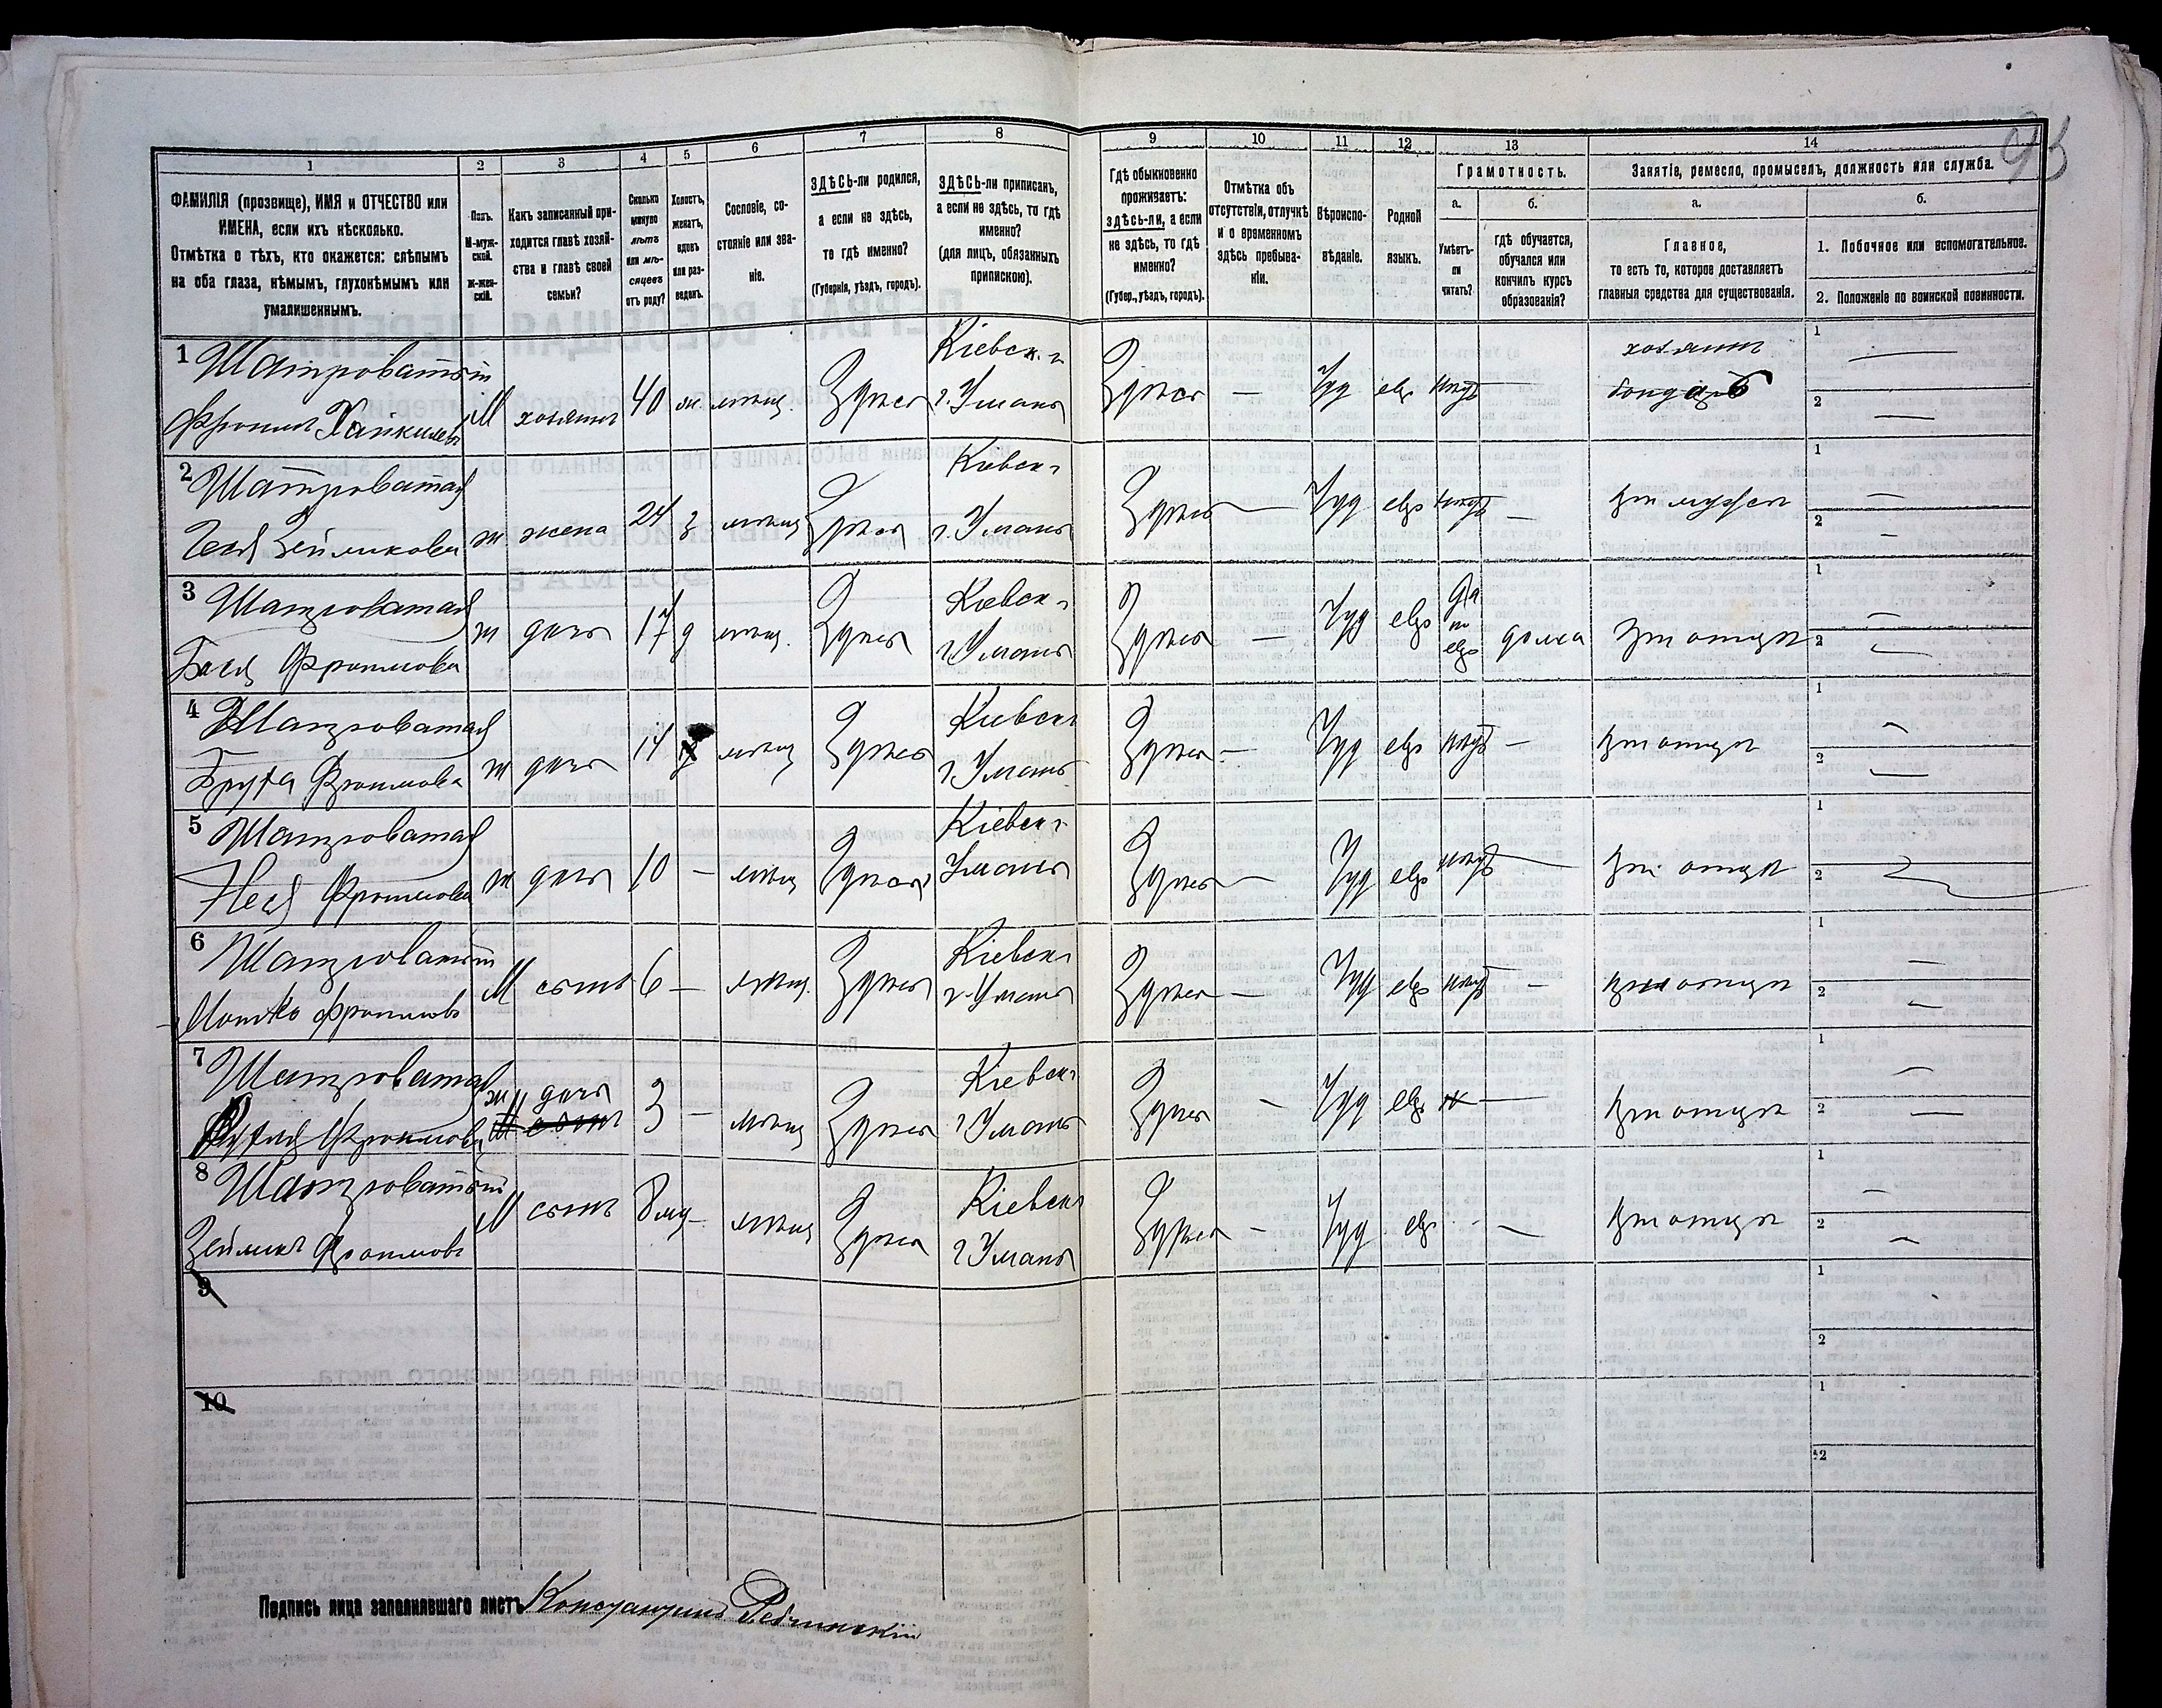 93
1 2 3 4 5 6 7 8 9 10 11 12 13 14
ФАМИЛІЯ (прозвище), ИМЯ и ОТЧЕСТВО или
ИМЕНА, если ихъ нѣсколько.
Отмѣтка о тѣхъ, кто окажется: слѣпымъ
на оба глаза, нѣмымъ, глухонѣмымъ или
умалишеннымъ.
Полъ.
М-муж-
ской.
Ж-жен-
скій.
Какъ записанный при-
ходится главѣ хозяй-
ства и главѣ своей
семьи?
Сколько
минуло
лѣтъ
или мѣ-
сяцевъ
отъ роду?
Холостъ,
женатъ,
вдовъ
или раз-
веденъ.
Сословіе, со-
стояніе или зва-
ніе.
ЗДѢСЬ-ли родился,
а если не здѣсь,
то гдѣ именно?
(Губернія, уѣздъ, городъ).
ЗДѢСЬ-ли приписанъ,
а если не здѣсь, то гдѣ
именно?
(для лицъ, обязанныхъ
припискою).
Гдѣ обыкновенно
проживаетъ:
здѣсь-ли, а если
не здѣсь, то гдѣ
именно?
(Губер., уѣздъ, городъ).
Отмѣтка объ
отсутствіи, отлучкѣ
и о временномъ
здѣсь пребыва-
ніи.
Вѣроиспо-
вѣданіе.
Родной
языкъ.
Грамотность.
а.
Умѣетъ-
ли
читать?
б.
гдѣ обучается,
обучался или
кончилъ курсъ
образованія?
Занятіе, ремесло, промыселъ, должность или служба.
а.
Главное,
то есть то, которое доставляетъ
главныя средства для существованія.
б.
1. Побочное или вспомогательное.
2. Положеніе по воинской повинности.
1 Шатроватый Кіевск. г. хозяинъ 1 —
Фроимъ Хаскилевъ М хозяинъ 40 ж. мѣщ. Здѣсь г. Умань Здѣсь — Іуд евр нѣтъ — бондарь 2 —
2 Шатроватая Кіевск г 1 —
Зейликова ж жена 24 з мѣщ Здѣсь г. Умань Здѣсь — Іуд евр нѣтъ — при мужѣ 2 —
3 Шатроватая Кіевск г да по евр 1 —
Бася Фроимова ж дочь 17 д мѣщ. Здѣсь г Умань Здѣсь — Іуд евр дома при отцѣ 2 —
4 Шатроватая Кіевск г 1 —
Фроимова ж дочь 14 мѣщ Здѣсь г Умань Здѣсь — Іуд евр нѣтъ — при отцѣ 2 —
5 Шатроватая Кіевск г 1
Неся Фроимова ж дочь 10 — мѣщ Здѣсь Умань Здѣсь — Іуд евр нѣтъ — при отцѣ 2
6 Шатроватый Кіевск г 1 —
Мошко Фроимовъ М сынъ 6 — мѣщ. Здѣсь г. Умань Здѣсь — Іуд евр нѣтъ — при отцѣ 2 —
7 Шатроватая ж дочь Кіевск г 1 —
Фроимова 3 — мѣщ Здѣсь г Умань Здѣсь — Іуд евр н — при отцѣ 2 —
8 Шатроватый Кіевск г 1 —
Зейликъ Фроимовъ М сынъ 8 мѣ — мѣщ Здѣсь г Умань Здѣсь — Іуд евр — — при отцѣ 2 —
9 1
2
10 1
2
Подпись лица заполнявшаго листъ Константинъ